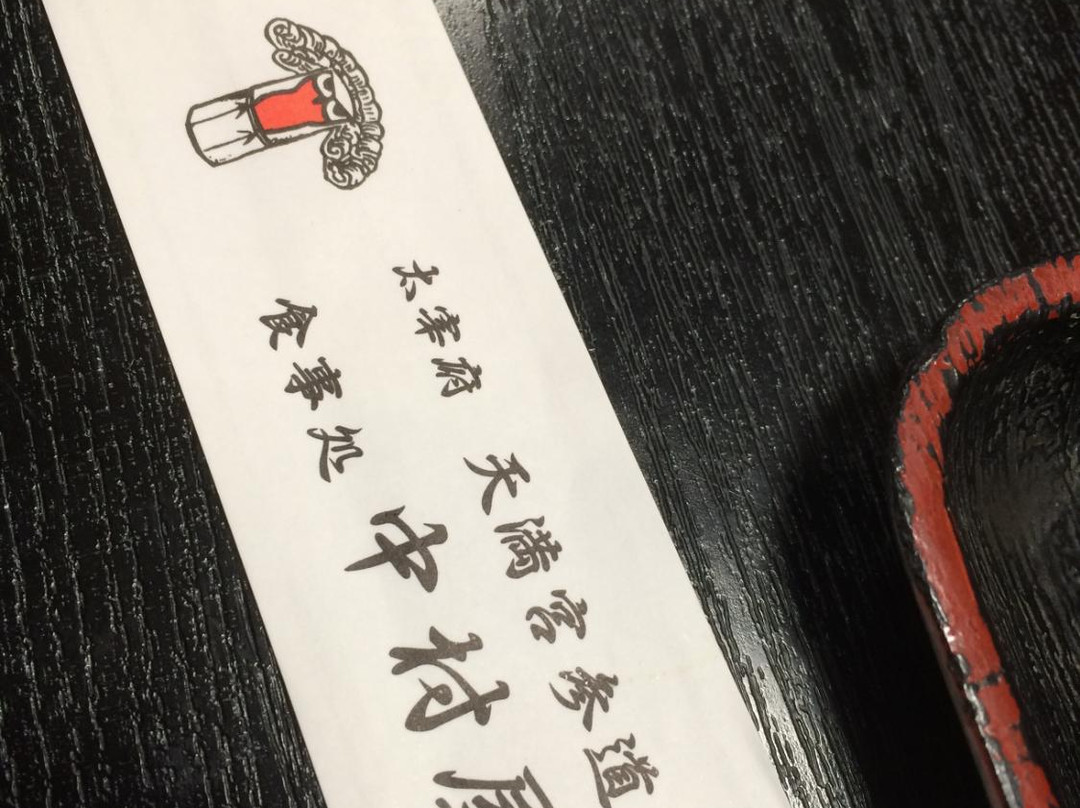 太宰府 天満宮参道
食事処 中村